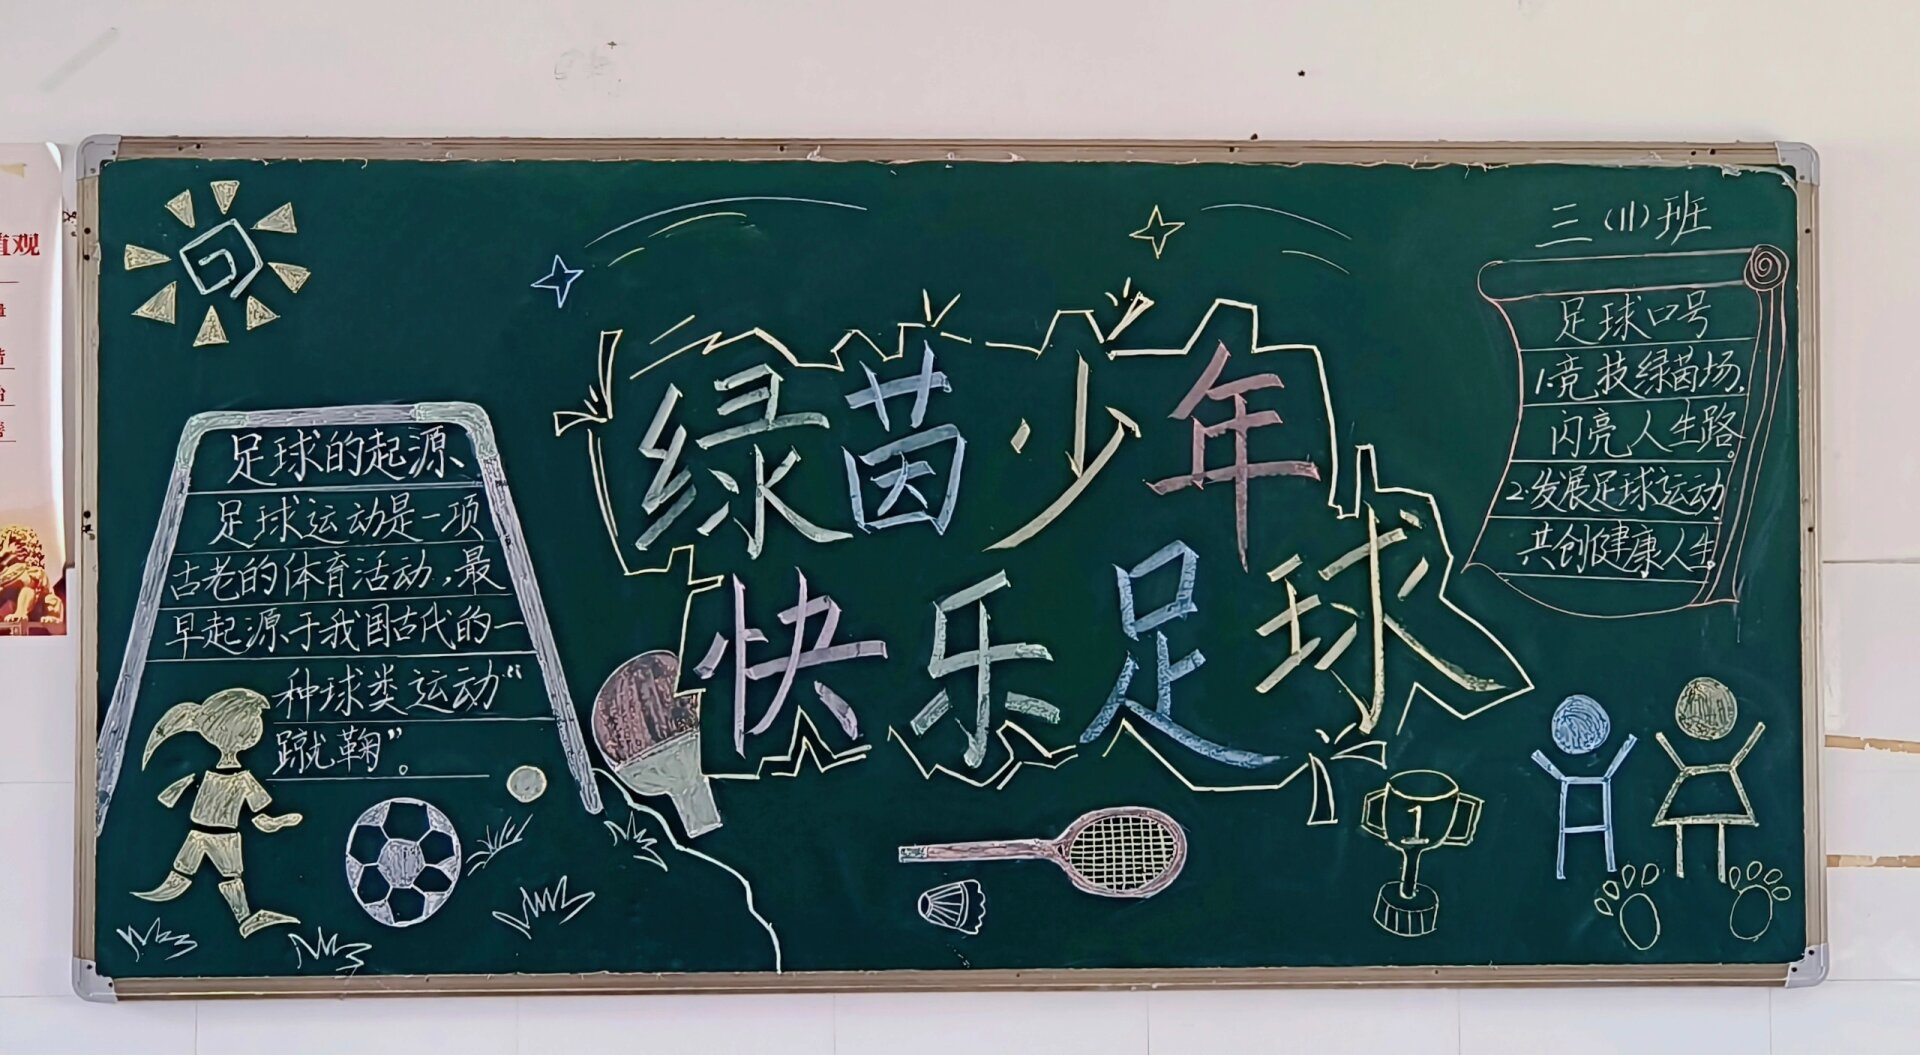 三（11）班
绿茵少年
快乐足球
足球的起源
足球运动是一项
古老的体育活动，最
早起源于我国古代的一
种球类运动“
蹴鞠”。
足球口号
1.竞技绿茵场，
闪亮人生路。
2.发展足球运动
共创健康人生。
1
值观